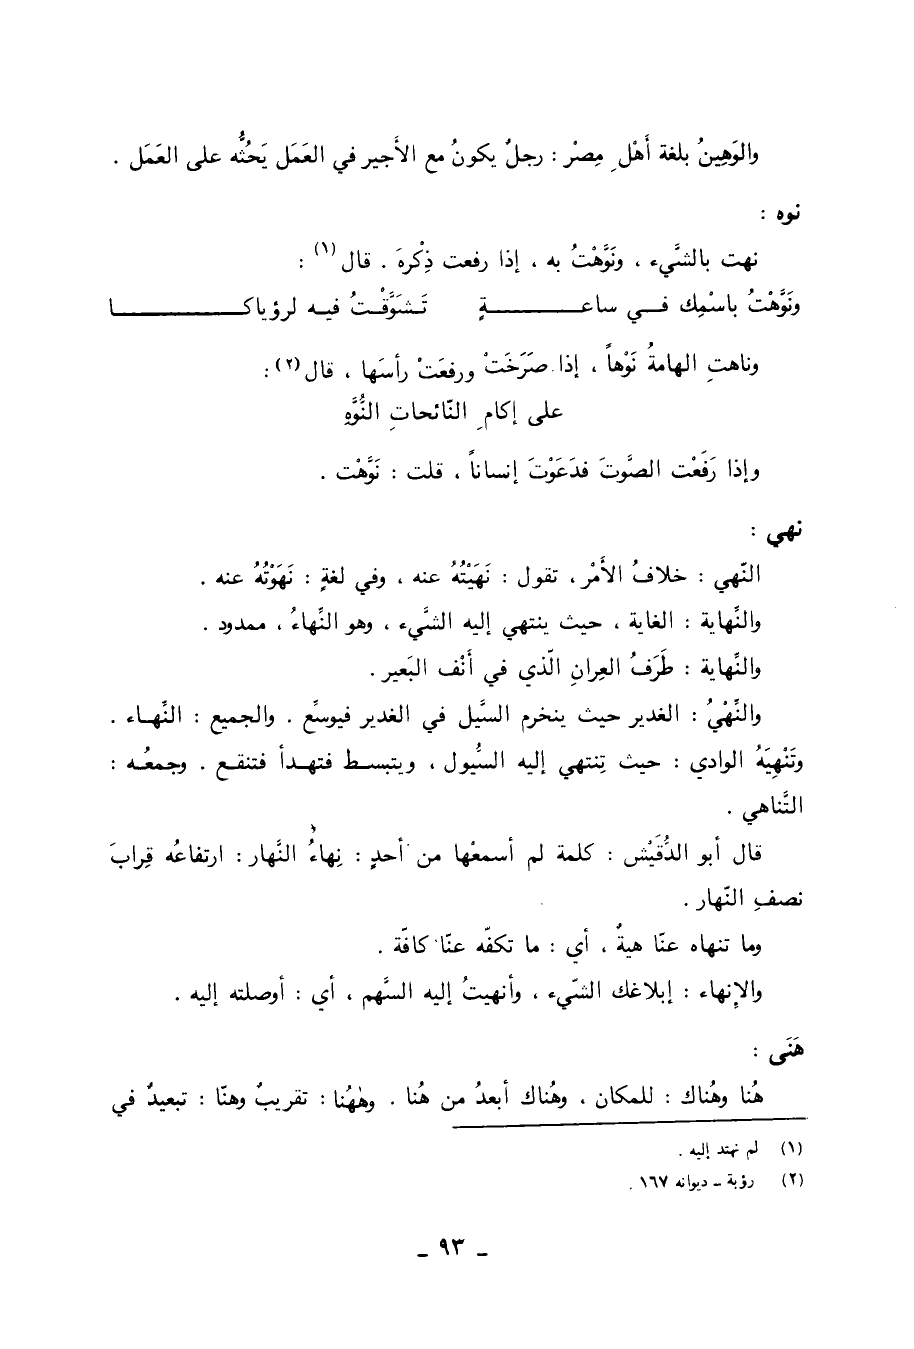 والوَهِينُ بلغة أَهْلِ مِصْر : رجلٌ يكونُ مع الأجير في العَمَل يَحُثُّه على العَمَل .
نوه :
نهت بالشَّيء ، ونَوَّهْتُ به ، إذا رفعت ذِكْرهَ . قال (١) :
ونَوَّهْتُ باسْمِك فــي ساعــــــــةٍ تَشَوَّقْتُ فيه لرؤياكـــــــــــــا
وناهتِ الهامةُ نَوْهاً ، إذا صَرَخَتْ ورفعَتْ رأسَها ، قال (٢) :
على إكامِ النّائحاتِ النُّوَّهِ
وإذا رَفَعْت الصَّوتَ فدَعَوْتَ إنساناً ، قلت : نَوَّهْت .
نهي :
النّهي : خلافُ الأَمْر ، تقول : نَهَيْتُهُ عنه ، وفي لغةٍ : نَهَوْتُهُ عنه .
والنِّهاية : الغاية ، حيث ينتهي إليه الشَّيء ، وهو النِّهاءُ ، ممدود .
والنِّهاية : طَرَفُ العِرانِ الّذي في أَنْف البَعير .
والنِّهْيُ : الغدير حيث ينخرم السَّيل في الغدير فيوسِّع . والجميع : النِّهـاء .
وتَنْهِيَهُ الوادي : حيث تِنتهي إليه السُّيول ، ويتبسـط فتهـدأ فتنقـع . وجمعُـه :
التَّناهي .
قال أبو الدُّقَيْش : كلمة لم أسمعْها من أحدٍ : نِهاءُ النَّهار : ارتفاعُه قِرابَ
نصفِ النّهار .
وما تنهاه عنّا هيةٌ ، أي : ما تكفّه عنّا كافّة .
والإنهاء : إبلاغك الشّيء ، وأنهيتُ إليه السَّهم ، أي : أوصلته إليه .
هَنَى :
هُنا وهُناك : للمكان ، وهُناك أبعدُ من هُنا . وهٰهُنا : تقريبٌ وهنّا : تبعيدٌ في
(١) لم نهتد إليه .
(٢) رؤبة ــ ديوانه ١٦٧ .
ــ ٩٣ ــ